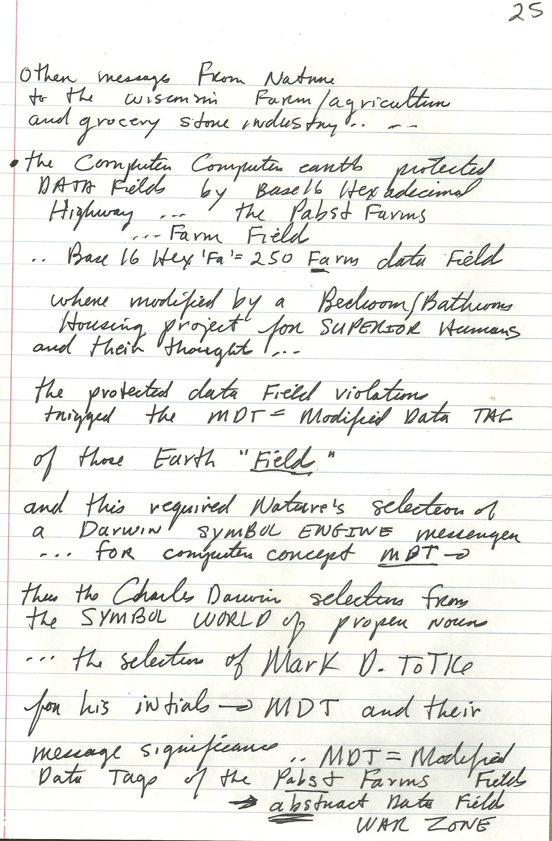 25
Other messages From Nature
to the wisconsin Farm/agriculture
and grocery store industry... ---
• the Computer Computer earth protected
DATA Fields by Base16 Hexadecimal
Highway ... the Pabst Farms
... Farm Field
.. Base 16 Hex 'Fa' = 250 Farm data Field
where modified by a Bedroom/Bathroom
Housing project for SUPERIOR Humans
and their thought ...
the protected data Field violation
trigged the MDT = Modified Data TAG
of those Earth "Field"
and this required Nature's selection of
a Darwin SYMBOL ENGINE messenger
... FOR computer concept MDT →
thus the Charles Darwin selection from
the SYMBOL WORLD of proper nouns
... the selection of Mark D. ToTKe
for his intials → MDT and their
message significance .. MDT = Modified
Data Tags of the Pabst Farms Fields
→ abstract Data Field
WAR ZONE